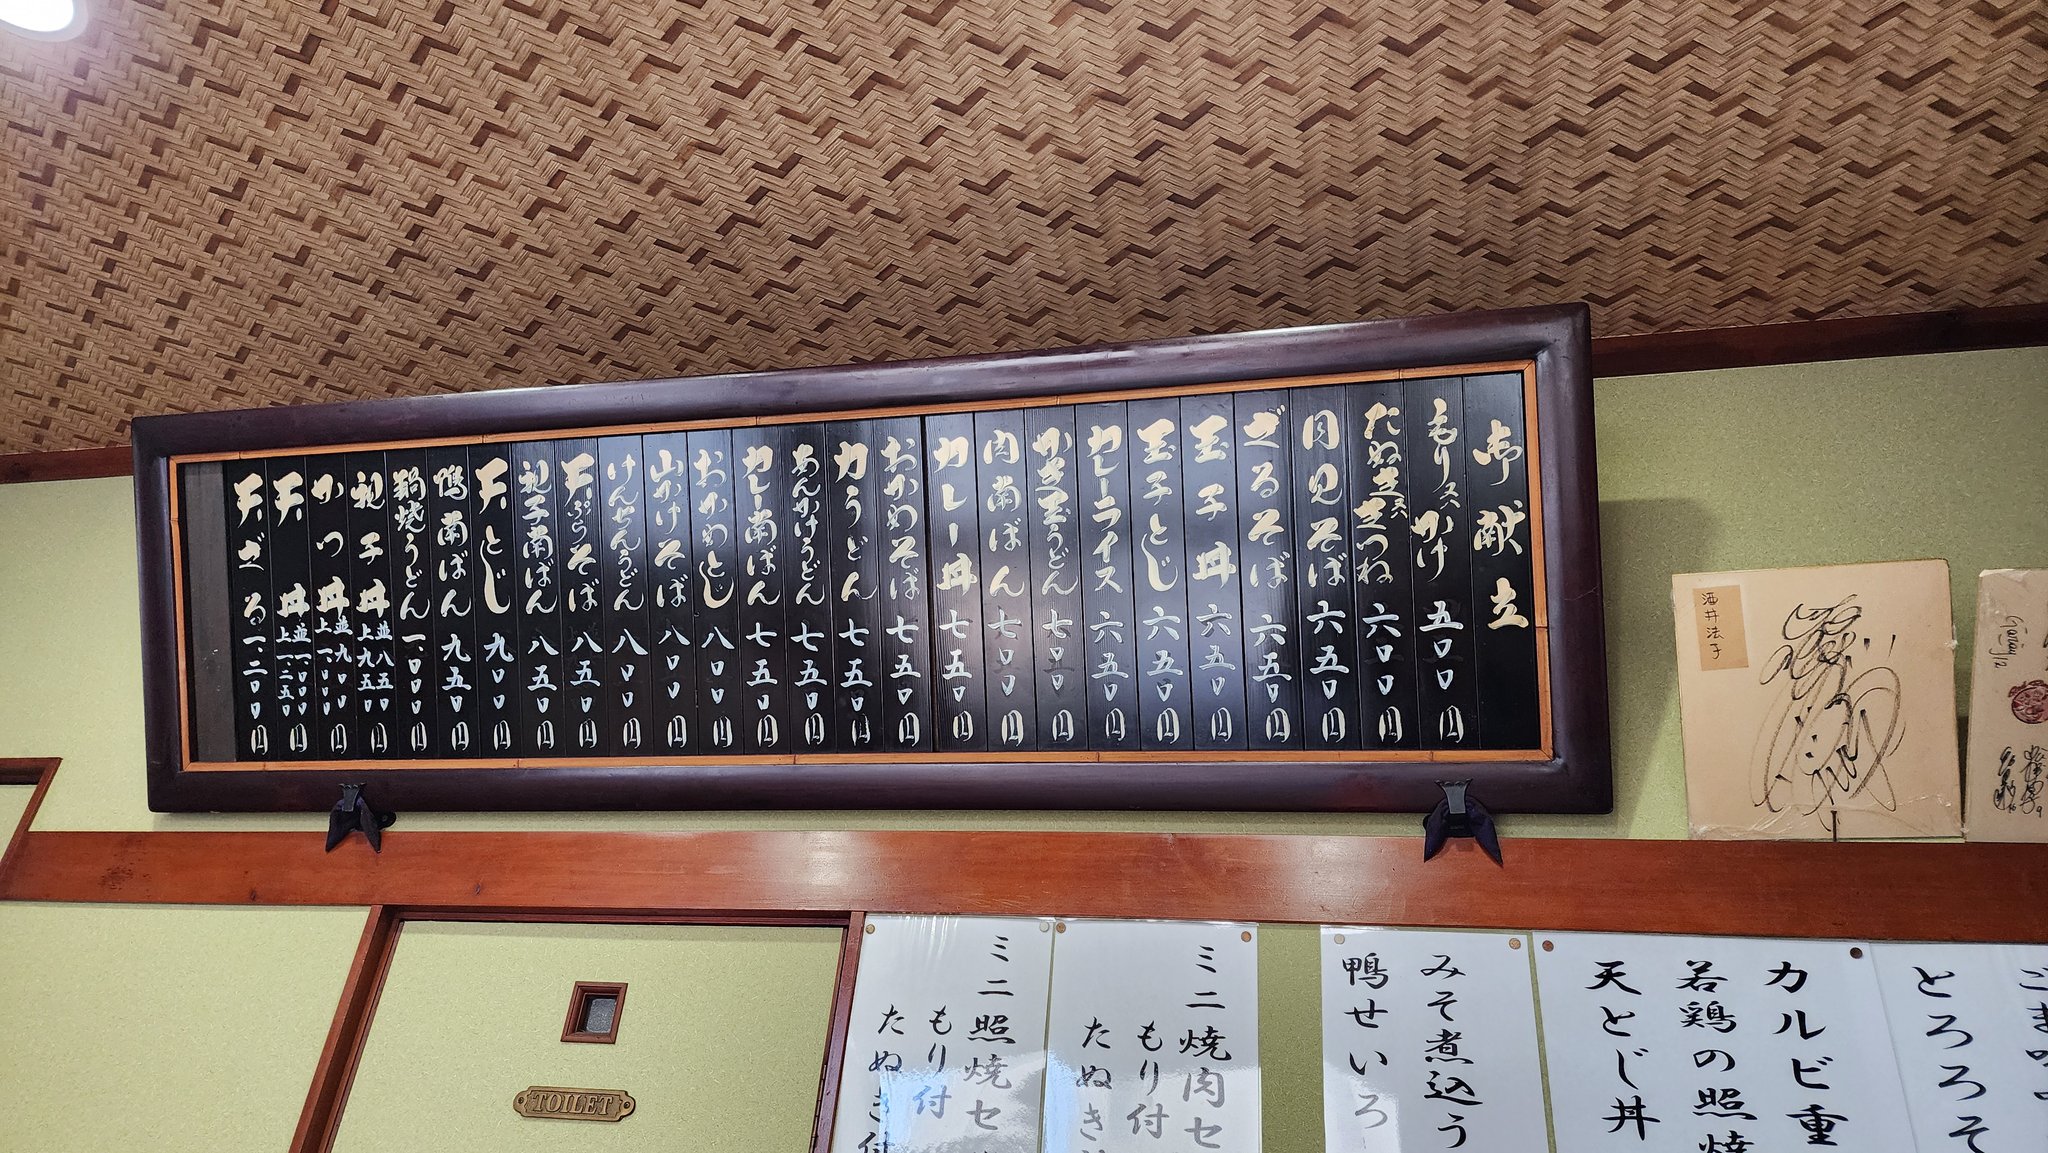 御献立
もり又ハかけ 五〇〇円
たぬき又ハきつね 六〇〇円
月見そば 六五〇円
ざるそば 六五〇円
玉子丼 六五〇円
玉子とじ 六五〇円
カレーライス 六五〇円
かき玉うどん 七〇〇円
肉南ばん 七〇〇円
カレー丼 七五〇円
おかめそば 七五〇円
力うどん 七五〇円
あんかけうどん 七五〇円
カレー南ばん 七五〇円
おかめとじ 八〇〇円
山かけそば 八〇〇円
けんちんうどん 八〇〇円
天ぷらそば 八五〇円
親子南ばん 八五〇円
天とじ 九〇〇円
鴨南ばん 九五〇円
鍋焼うどん 一、〇〇〇円
親子丼 並八五〇 上九五〇円
かつ丼 並九〇〇 上一、〇〇〇円
天丼 並一、〇〇〇 上一、二五〇円
天ざる 一、二〇〇円
酒井法子
とろろそ
カルビ重
若鶏の照焼
天とじ丼
みそ煮込う
鴨せいろ
ミニ焼肉セ
もり付
たぬき
ミニ照焼セ
もり付
たぬき付
TOILET